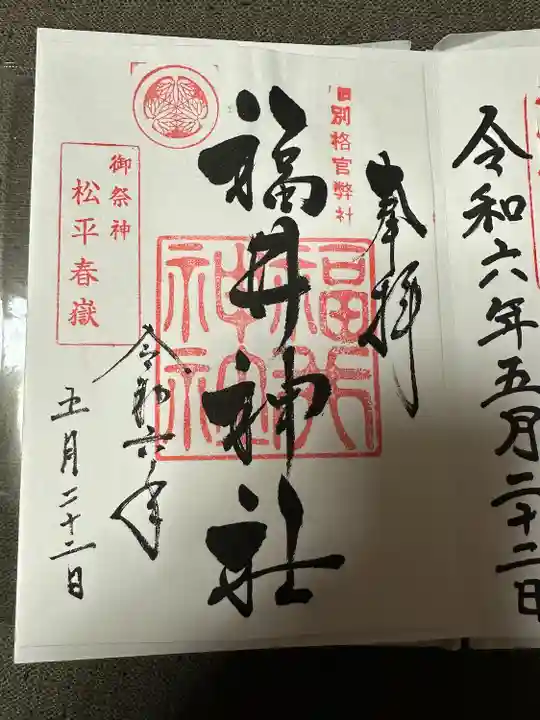 令和六年五月二十二日
奉拝
旧別格官弊社
福井神社
福井神社
令和六年
五月二十二日
御祭神
松平春嶽